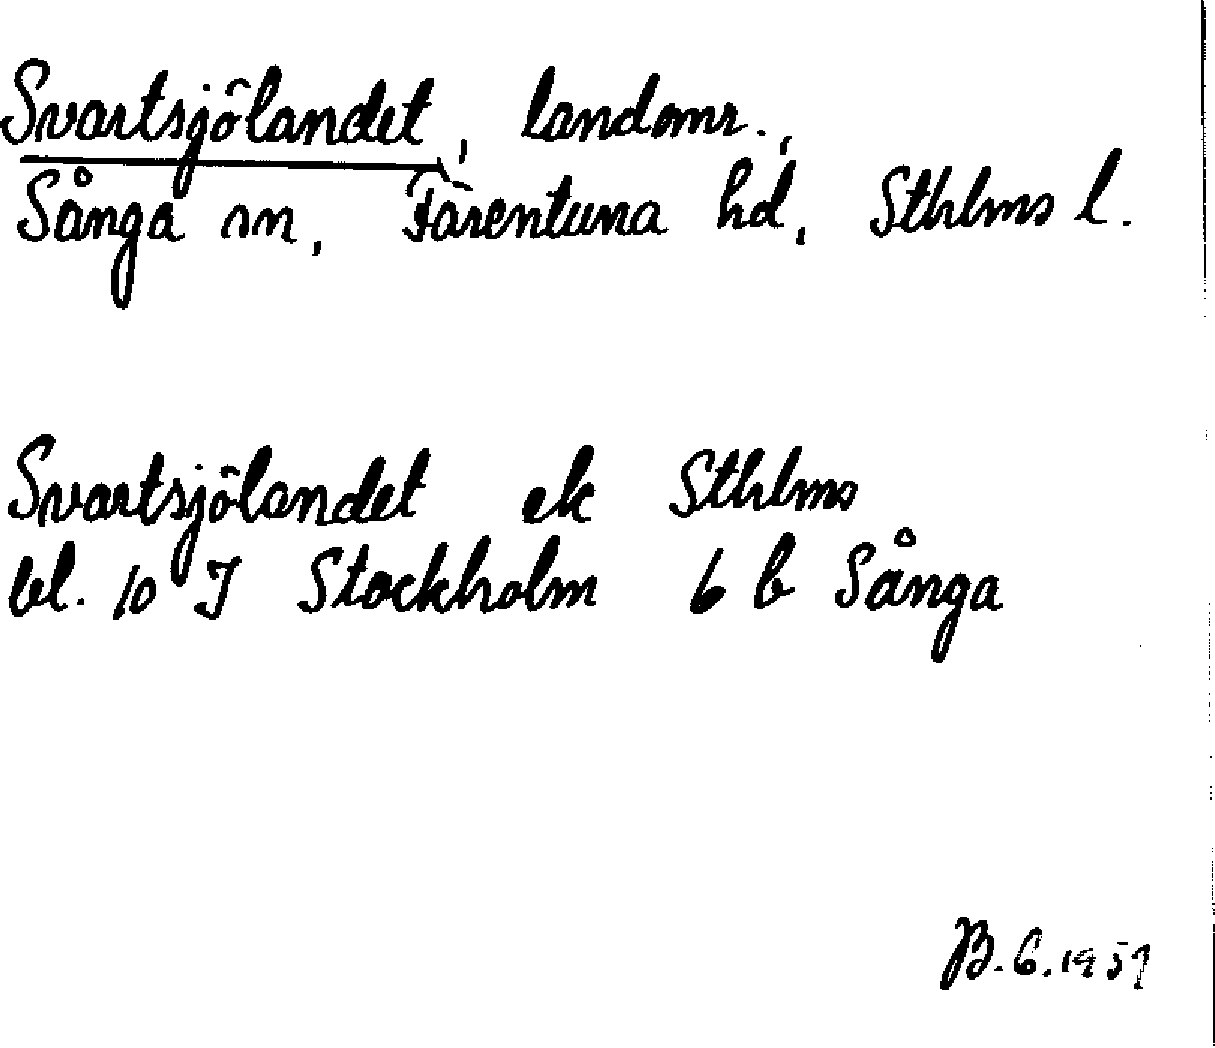 Svartsjölandet, landomr.,
Sånga sn, Färentuna hd, Sthlms l.
Svartsjölandet ek Sthlms
bl. 10 I Stockholm 6 b Sånga